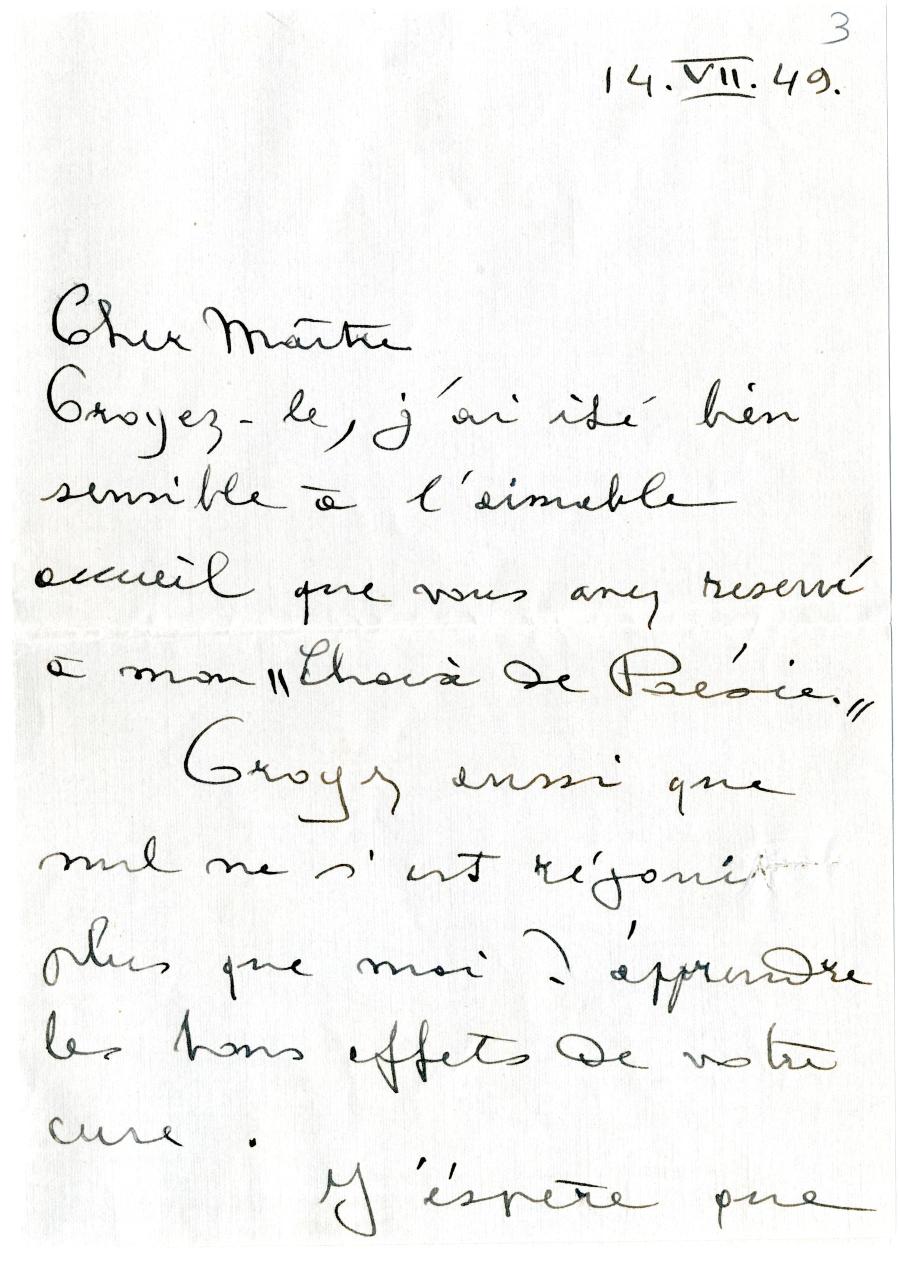 3
14.VII.49.
Cher Maître
Croyez-le, j'ai été bien
sensible à l'aimable
accueil que vous avez reservé
à mon "Choix de Poésie."
Croyez aussi que
nul ne s'est réjoui
plus que moi d'apprendre
les bons effets de votre
cure.
J'éspère que